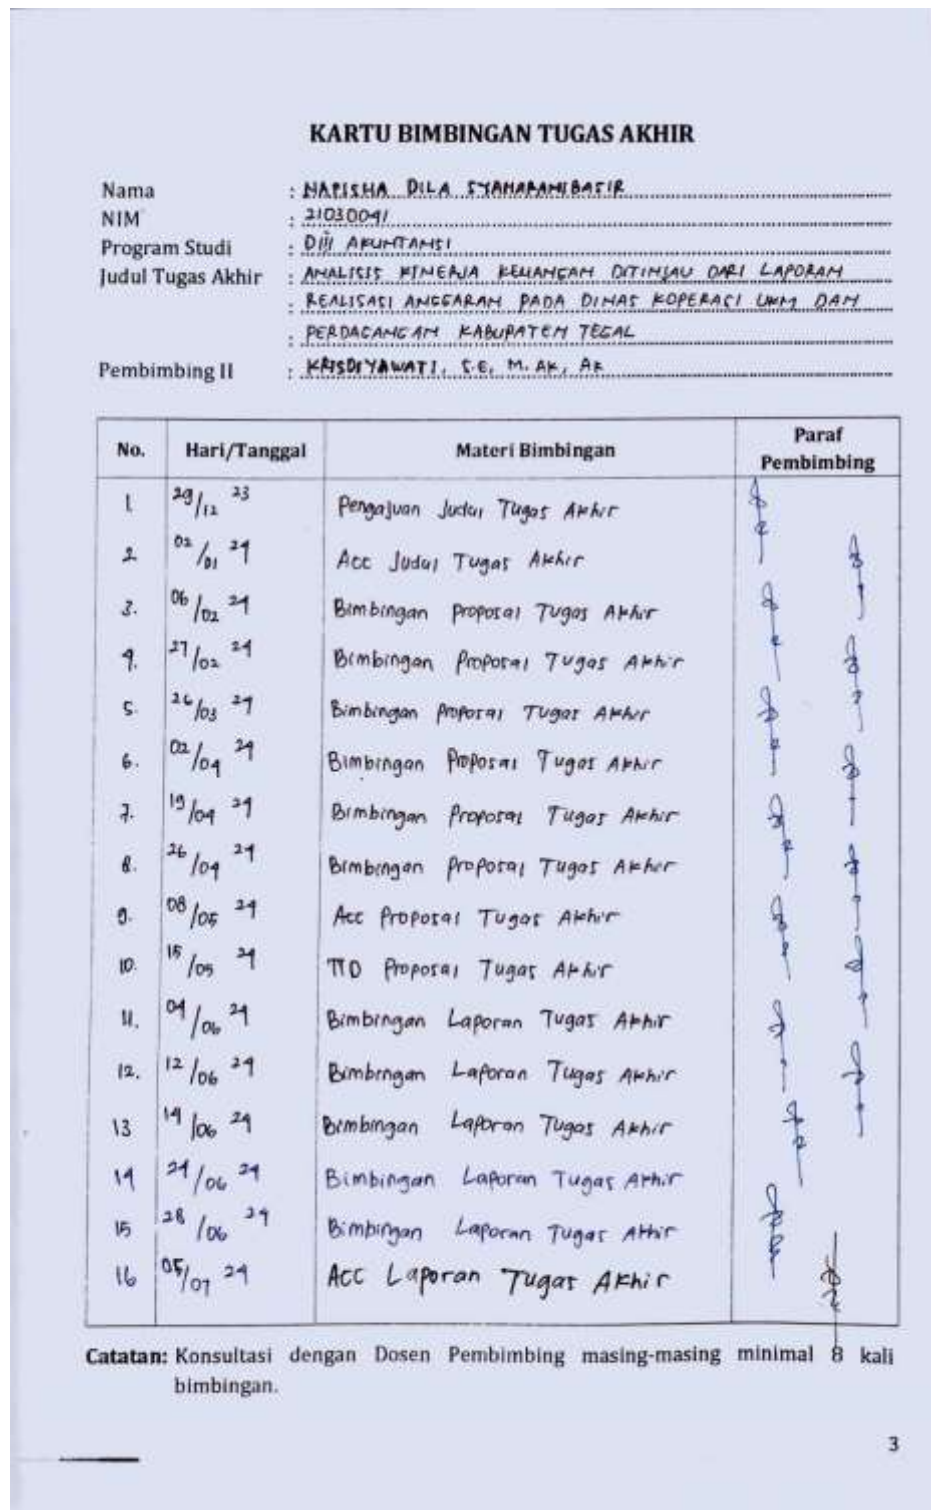 KARTU BIMBINGAN TUGAS AKHIR
Nama : NAPISHA DILA
NIM : 21030041
Program Studi : DIII AKUNTANSI
Judul Tugas Akhir : ANALISIS KINERJA KEUANGAN DITINJAU DARI LAPORAN
: REALISASI ANGGARAN PADA DINAS KOPERASI UKM DAN
: PERDAGANGAN KABUPATEN TEGAL
Pembimbing II : KRISDIYAWATI, S.E, M.Ak, Ak
No. Hari/Tanggal Materi Bimbingan Paraf Pembimbing
1. 29/12 23 Pengajuan Judul Tugas Akhir
2. 02/01 24 Acc Judul Tugas Akhir
3. 06/02 24 Bimbingan Proposal Tugas Akhir
4. 27/02 24 Bimbingan Proposal Tugas Akhir
5. 26/03 24 Bimbingan Proposal Tugas Akhir
6. 02/04 24 Bimbingan Proposal Tugas Akhir
7. 19/04 24 Bimbingan Proposal Tugas Akhir
8. 26/04 24 Bimbingan Proposal Tugas Akhir
9. 08/05 24 Acc Proposal Tugas Akhir
10. 15/05 24 TTD Proposal Tugas Akhir
11. 04/06 24 Bimbingan Laporan Tugas Akhir
12. 12/06 24 Bimbingan Laporan Tugas Akhir
13 14/06 24 Bimbingan Laporan Tugas Akhir
14 24/06 24 Bimbingan Laporan Tugas Akhir
15 28/06 24 Bimbingan Laporan Tugas Akhir
16 05/07 24 Acc Laporan Tugas Akhir
Catatan: Konsultasi dengan Dosen Pembimbing masing-masing minimal 8 kali
bimbingan.
3